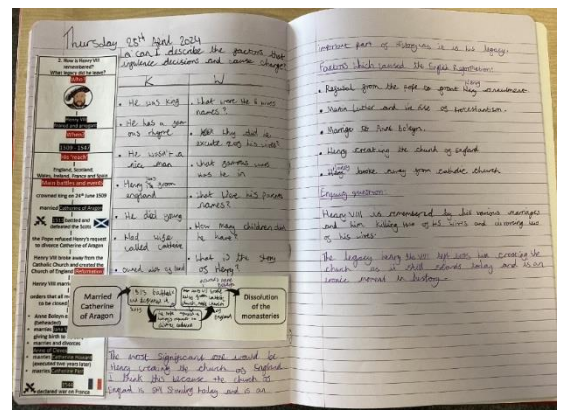 Thursday 25th April 2024
Lo can I describe the factors that
influence decisions and cause change?
2. How is Henry VIII
remembered?
What legacy did he leave?
Who?
Henry VIII
When?
1509 - 1547
His 'reach'
England, Scotland,
Wales, Ireland, France and Spain
Main battles and events
crowned king on 24th June 1509
married Catherine of Aragon
battled and
defeated the Scots
the Pope refused Henry's request
to divorce Catherine of Aragon
Henry VIII broke away from the
Catholic Church and created the
Church of England Reformation
Henry VIII
orders that all
to be closed
Anne Boleyn
(beheaded)
married
giving birth to
marries and divorces
Anne of Cleves
married Catherine Howard
(executed two years later)
married Catherine Parr
declared war on France
K
He was King
He has a
rhyme
He wasn't a
nice man
Henry from
england
He died young
Had wife
called Catherine
W
What were the 6 wives
names?
Why did he
execute two his wives?
What wars
was he in
What were his parents
names?
How many children did
he have?
What is the story
of Henry?
Married
Catherine
of Aragon
Dissolution
of the
monasteries
The most significant one would be
Henry creating the church of England
I think this because the church of
England is still standing today and is an
important part of history as it is his legacy.
Factors which caused the English Reformation:
Refusal from the pope to grant Henry annulment.
Martin Luther and the rise of protestantism.
Marriage to Anne Boleyn.
Henry creating the church of England
Henry broke away from catholic church
Enquiry question:
Henry VIII is remembered by his various marriages
and him killing two of his wives and divorcing two
of his wives.
The legacy Henry the VIII left was him creating the
church as it still stands today and is an
in history.